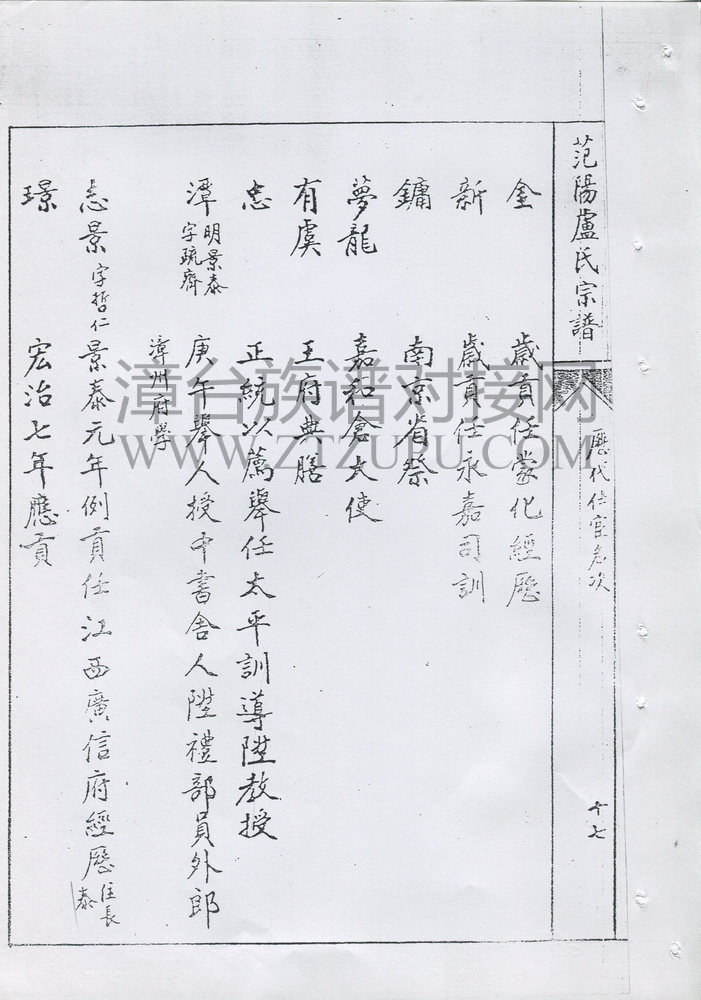 范陽盧氏宗譜
歷代仕宦名次
十七
金 歲貢任蒙化經歷
新 歲貢任永嘉司訓
鏞 南京省祭
夢龍 嘉和倉大使
有虞 王府典膳
忠 正統以薦舉任太平訓導陞教授
潭 明景泰 字疏齊 庚午舉人授中書舍人陞禮部員外郎
漳州府學
志景 字哲仁 景泰元年例貢任江西廣信府經歷 住長泰
璟 宏治七年應貢
漳台族谱对接网
WWW.ZTZUPU.COM